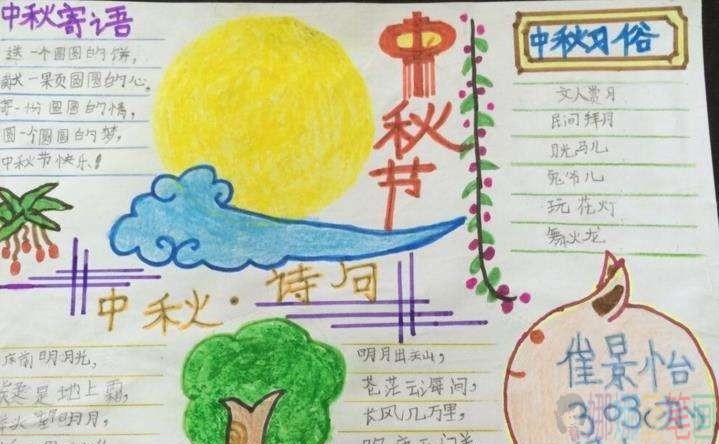 中秋寄语
送一个圆圆的饼,
献一颗圆圆的心。
寄一份圆圆的情,
圆一个圆圆的梦,
中秋节快乐!
中秋节
中秋习俗
文人赏月
民间拜月
月光马儿
兔爷儿
玩花灯
舞火龙
中秋·诗句
床前明月光,
疑是地上霜,
明月,
明月出天山,
苍茫云海间,
长风几万里,
崔景怡
303